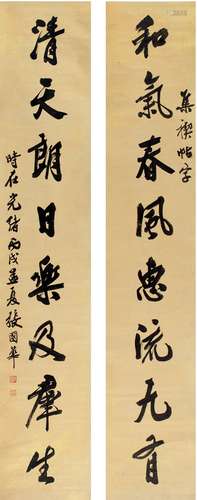 和氣春風惠流九有
集禊帖字
清天朗日樂及羣生
時在光緒丙戌孟夏張國華